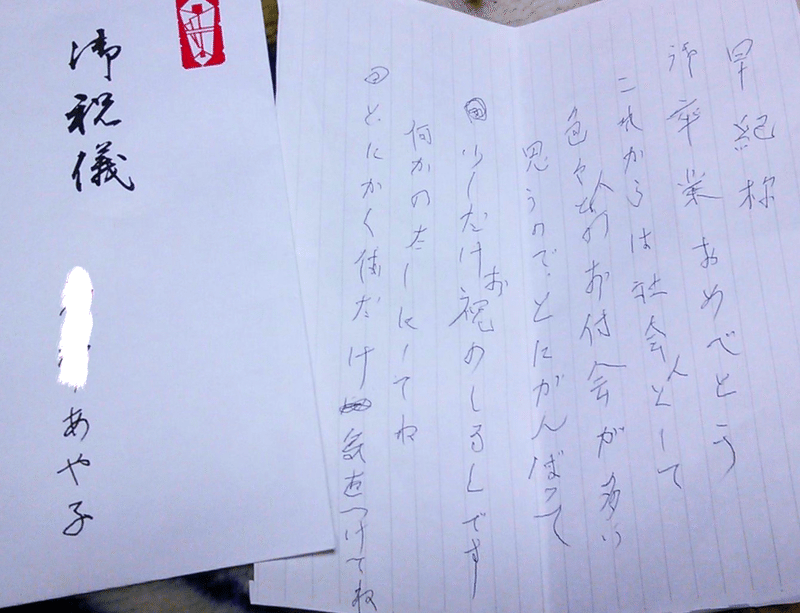 早紀様
御卒業おめでとう
これからは社会人として
色々な人のお付会が多い
思うので、とにがんばって
少しだけお祝のしるしです
何かのたしにしてね
とにかく体だけ気をつけてね
御祝儀
あや子